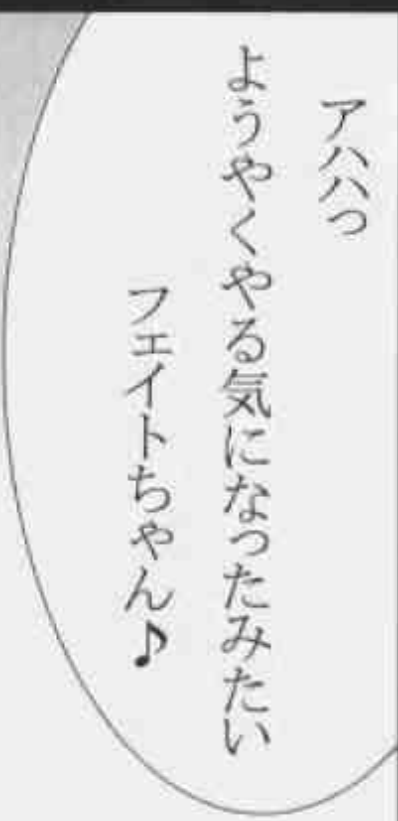 アハハっ
ようやくやる気になったみたい
フェイトちゃん♪